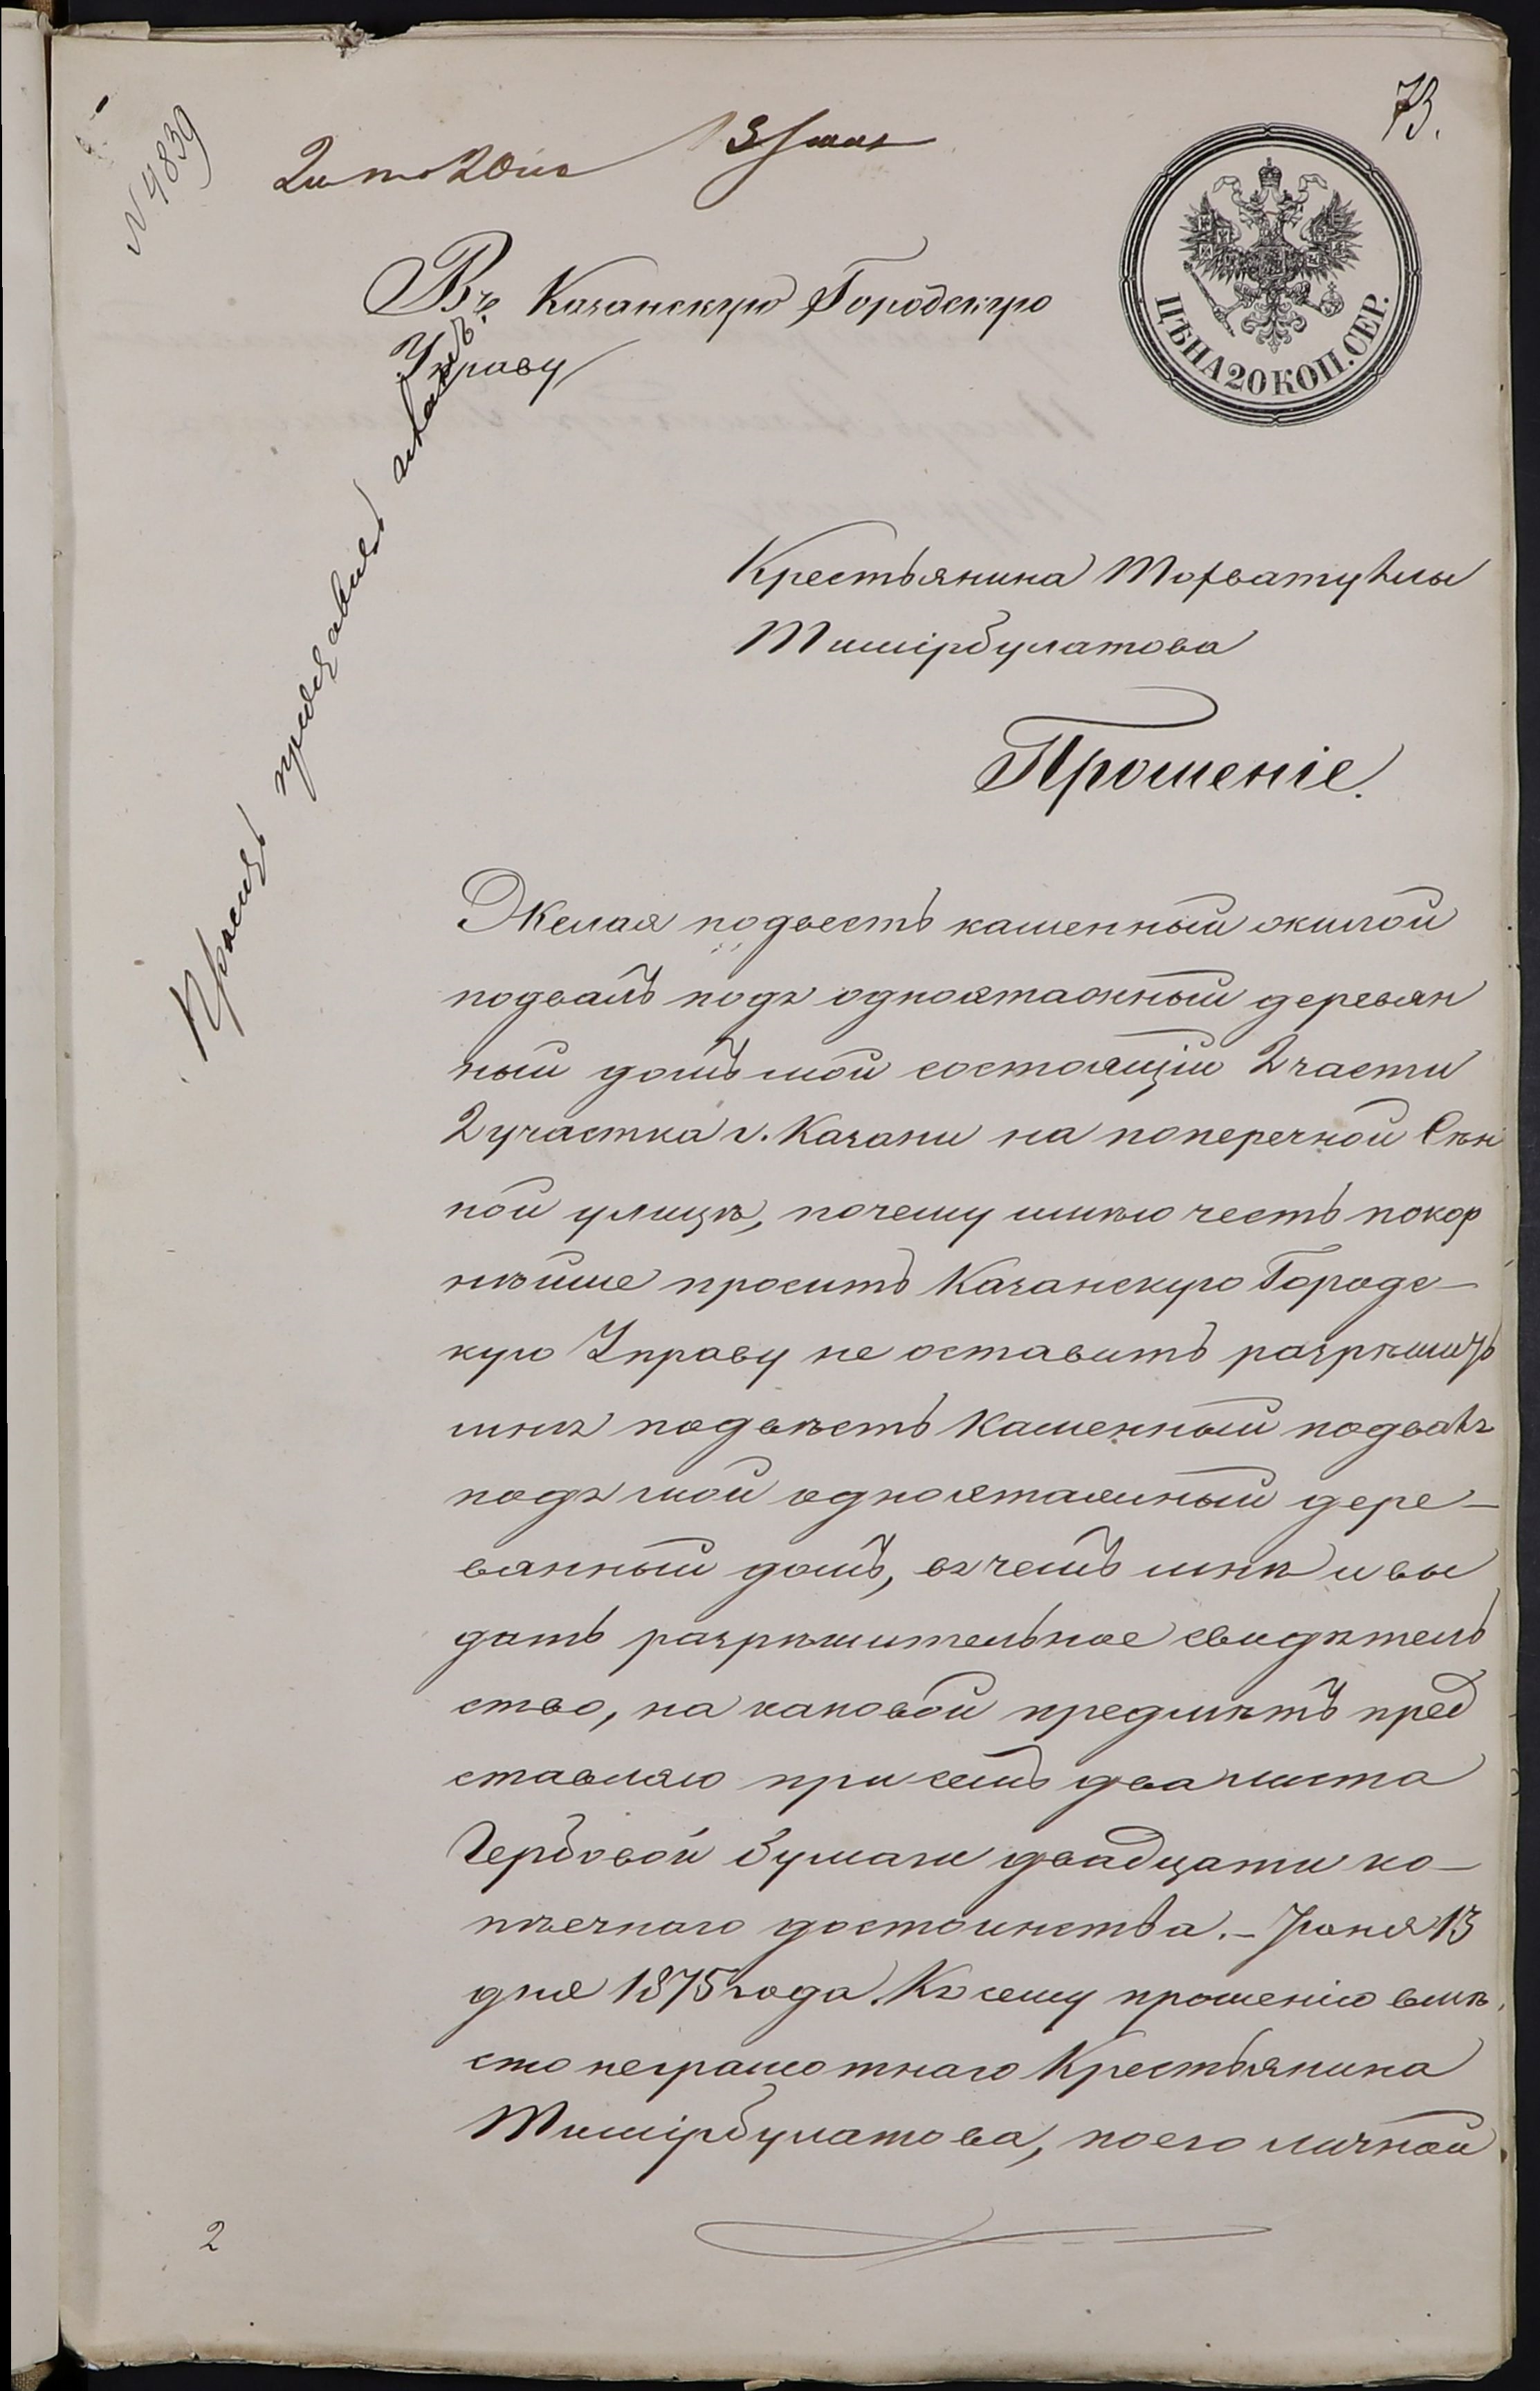 73.
N 4839
13 Іюня
Въ Казанскую Городскую
Управу
ЦѢНА 20 КОП. СЕР.
Крестьянина
Тимірбулатова
Прошеніе.
Желая подвесть каменный жилой
подвалъ подъ одноэтажный деревян
ный домъ мой состоящій 2 части
2 участка г. Казани на поперечной Сѣн
ной улицѣ, почему имѣю честь покор
нѣйше просить Казанскую Городс-
кую Управу не оставить разрѣшить
мнѣ подвѣсть каменный подвалъ
подъ мой одноэтажный дере-
вянный домъ, въ чемъ мнѣ и вы
дать разрѣшительное свидѣтель
ство, на каковой предмѣтъ пред
ставляю при семъ два листа
гербовой бумаги двадцати ко-
пѣечнаго достоинства. - Іюня 13
дня 1875 года. Къ сему прошенію вмѣ
сто неграмотнаго Крестьянина
Тимірбулатова, по его личной
2